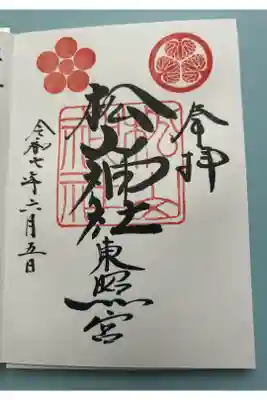 奉拝
松山神社
東照宮
令和七年二月五日